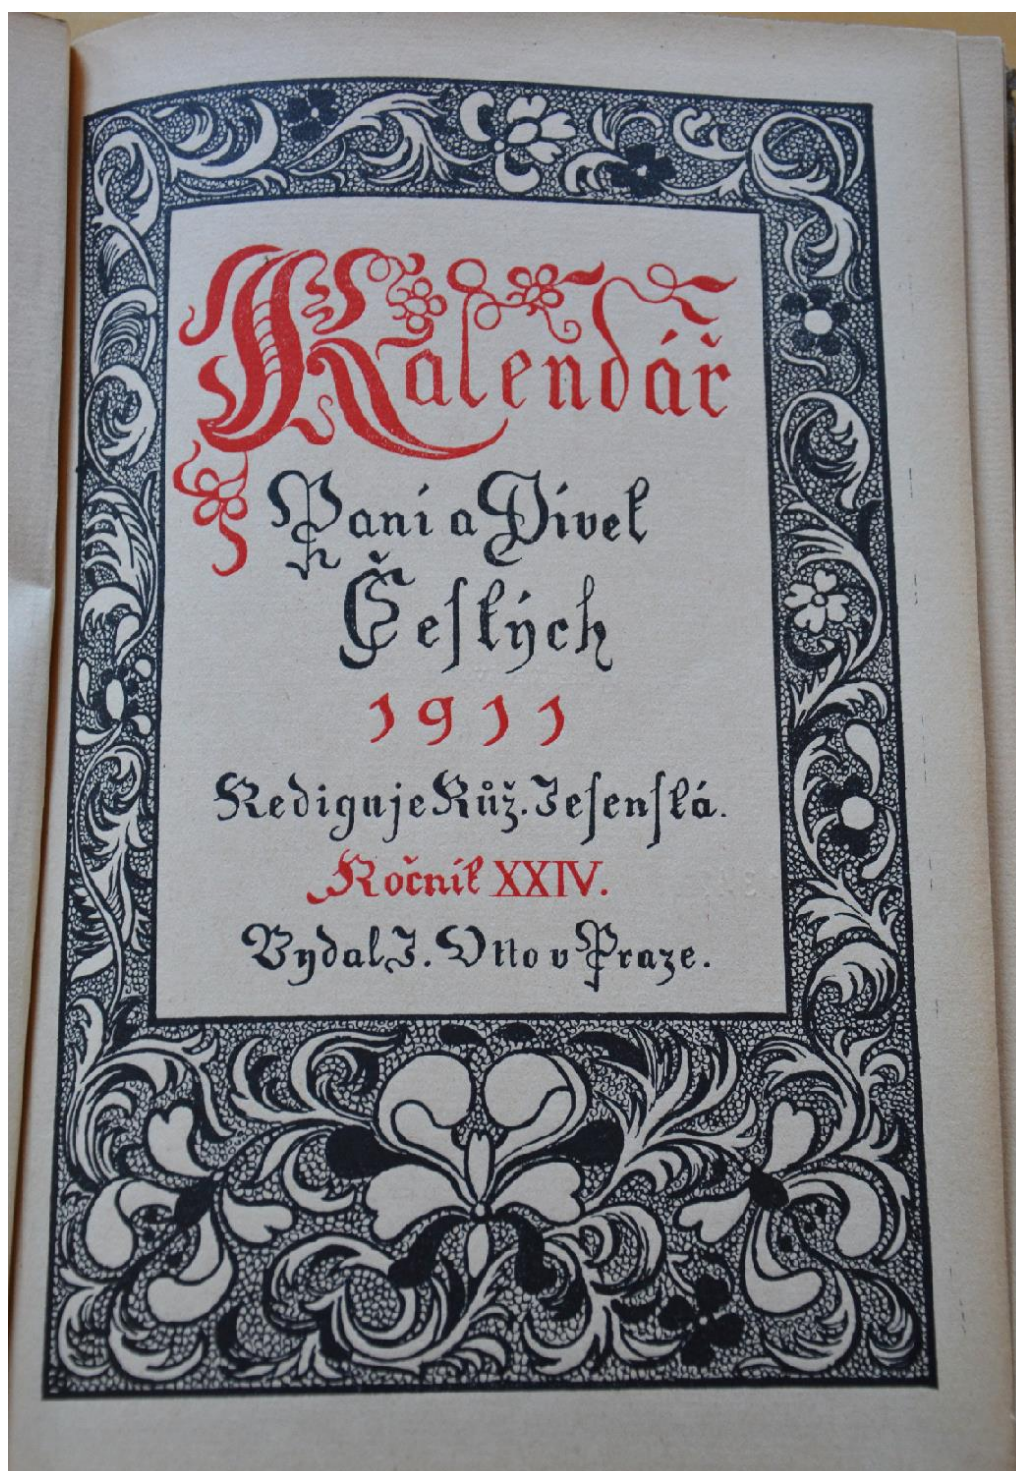 Kalendář
Paní a Dívek
Českých
1911
Rediguje Růž. Jesenská.
Ročník XXIV.
Vydal J. Otto v Praze.